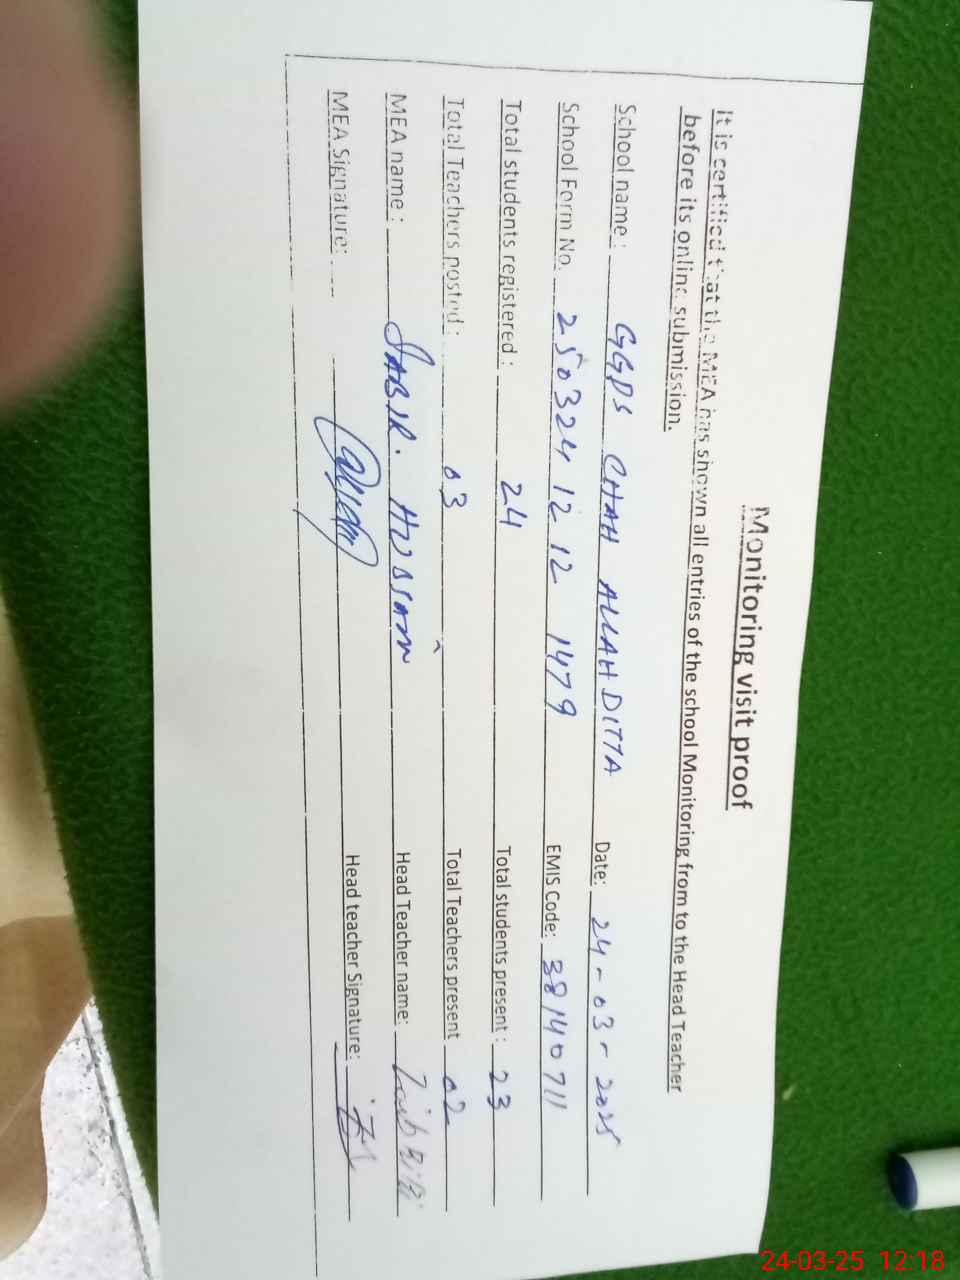 Monitoring visit proof
It is certified that the MEA has shown all entries of the school Monitoring from to the Head Teacher
before its online submission.
School name: GGPS CHAH ALLAH DITTA Date: 24-03-2025
School Form No. 250324 12 12 1479 EMIS Code: 38140711
Total students registered: 24 Total students present: 23
Total Teachers posted: 03 Total Teachers present 02
MEA name: SABIR. HUSSAIN Head Teacher name: Bibi
MEA Signature: Head teacher Signature:
24-03-25 12:18